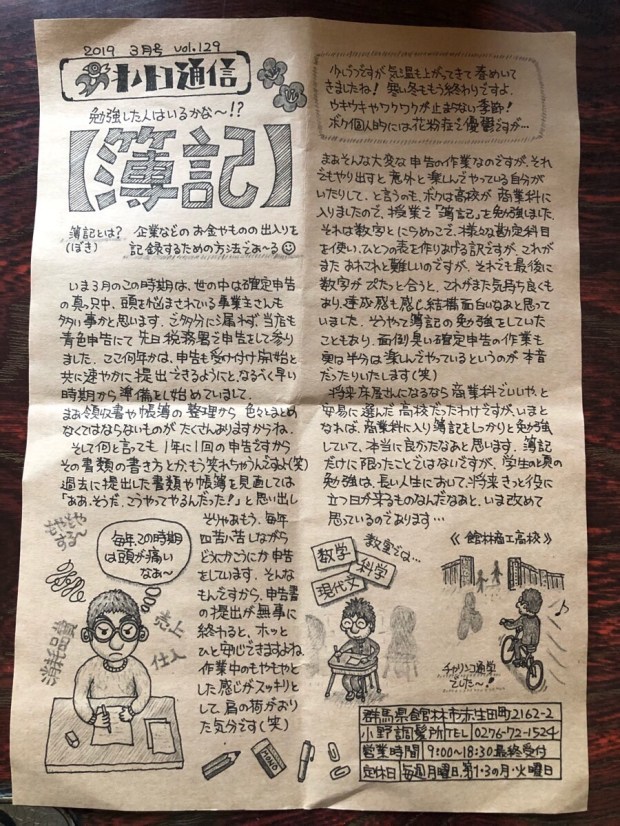 2019 3月号 vol.129
通信
勉強した人はいるかな〜!?
【簿記】
簿記とは?
(ぼき)
企業などのお金やものの出入りを
記録するための方法であ〜る
いま3月のこの時期は、世の中は確定申告
の真っ只中、頭を悩まされている事業主さんも
多い事かと思います。ご多分に漏れず、当店も
青色申告にて先日税務署で申告をして参り
ました。ここ何年かは、申告も受け付け開始と
共に速やかに提出できるようにと、なるべく早い
時期から準備をし始めていまして。
まあ領収書や帳簿の整理から色々とまとめ
なくてはならないものがたくさんありますからね。
そして何と言っても1年に1回の申告ですから
その書類の書き方とか、もう笑われちゃうんですよ(笑)
過去に提出した書類や帳簿を見直しては
「ああ、そうだ、こうやってやるんだった!」と思い出し
そりゃあもう、毎年
四苦八苦しながら
どうにかこうにか申告
をしています。そんな
もんですから、申告書
の提出が無事に
終わると、ホッと
ひと安心できますよね
作業中のもやもやと
した感じがスッキリと
して、肩の荷がおり
た気分です(笑)
毎年、この時期
は頭が痛い
なあ〜
売上
仕入
消耗品費
少しづつですが気温も上がってきて春めいて
きましたね!寒い冬ももう終わりですよ。
ウキウキやワクワクが止まらない季節!
ボク個人的には花粉症で憂鬱ですが…
まあそんな大変な申告の作業なのですが、それ
でもやり出すと意外と楽しんでやっている自分が
いたりして。と言うのも、ボクは高校が商業科に
入りましたので、授業で「簿記」を勉強しました。
それは数字とにらめっこで、様々な勘定科目
を使い、ひとつの表を作りあげる訳ですが、これが
またあれこれと難しいのですが、それでも最後に
数字がぴたっと合うと、これがまた気持ち良くも
あり、達成感も感じ、結構面白いなあと思って
いました。そうやって簿記の勉強をしていた
こともあり、面倒臭い確定申告の作業も
実は半分は楽しんでやっているというのが本音
だったりいたします(笑)
将来床屋さんになるなら商業科でいいや、と
安易に選んだ高校だったわけですが、いまと
なれば、商業科に入り簿記をしっかりと勉強
していて、本当に良かったなあと思います。簿記
だけに限ったことではないですが、学生の頃の
勉強は、長い人生において、将来きっと役に
立つ日が来るものなんだなあと、いま改めて
思っているのであります…
教室では…
数学
科学
現代文
《館林商工高校》
チャリンコ通学
でした〜!
MONO
群馬県館林市赤生田町2162-2
小野調髪所 TEL 0276-72-1524
営業時間 9:00〜18:30最終受付
定休日 毎週月曜日、第1・3の月・火曜日